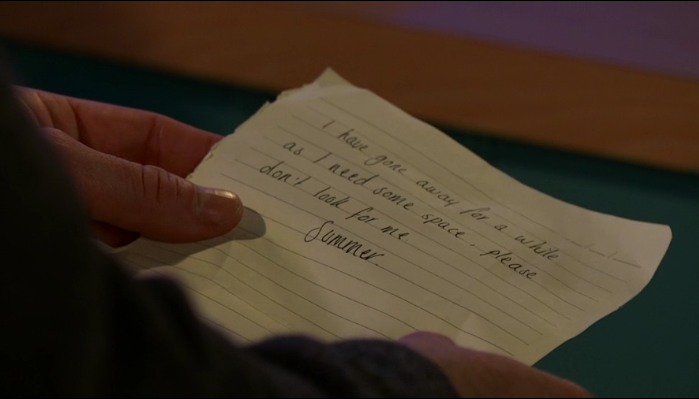 I have gone away for a while
as I need some space. please
don't look for me
Summer.